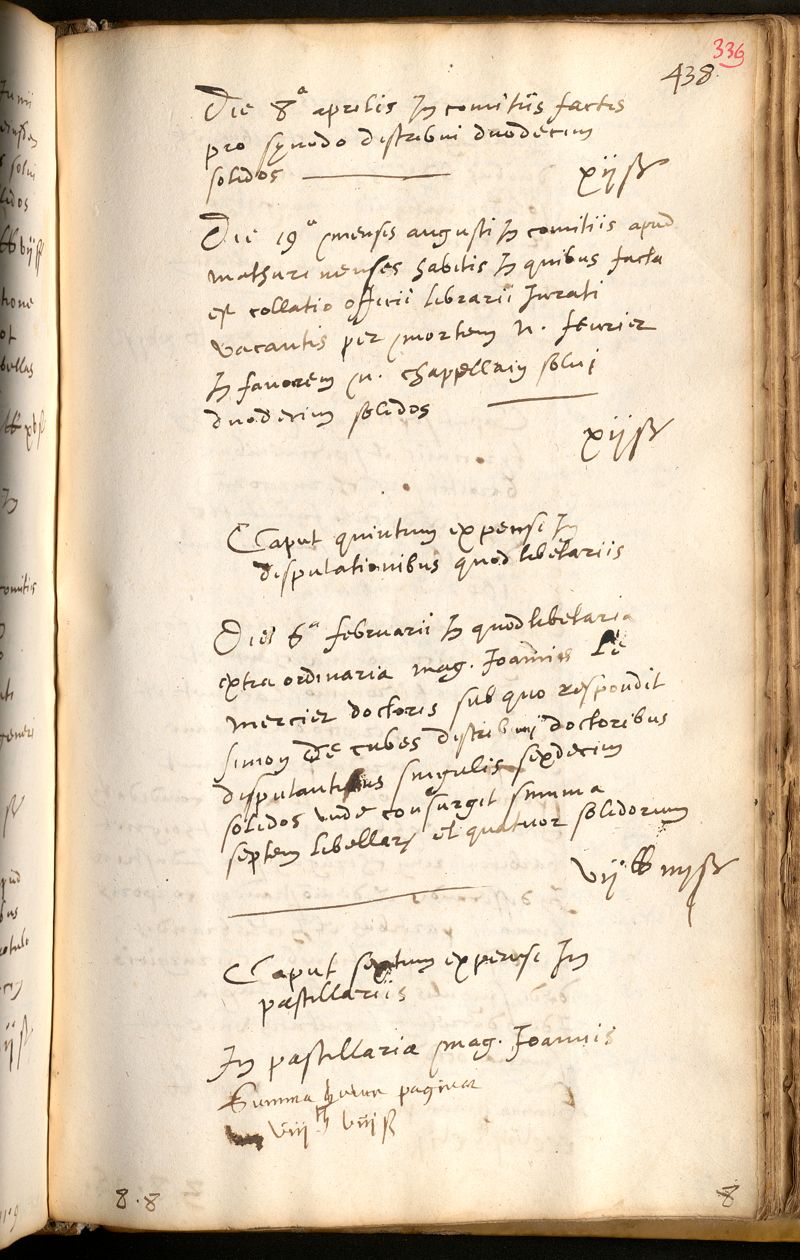 336
438
Die 8ª aprilis In comitiis factis
pro synodo distribui duodecim
solidos
xijß
Die 19ª mensis augusti In comitiis apud
mathurinenses habitis In quibus facta
est collatio officii librarii Jurati
vacantis per mortem n. fevrier
In favorem n. chappellain solui
duodecim solidos
xijß
Caput quintum expensę In
disputationibus quodlibetariis
Diei 6ª februarii In quodlibetaria
extraordinaria mag. Joannis Le
mercier doctoris sub quo respondit
simon De cubes distribui doctoribus
disputantibus singulis sexdecim
solidos unde consurgit summa
septem libellarum et quatuor solidorum
vij ℔ iiijß
Caput sextum expensę In
pastillariis
In pastillaria mag. Joannis
Summa huius paginae
viij ℔ viijß
8.8
8